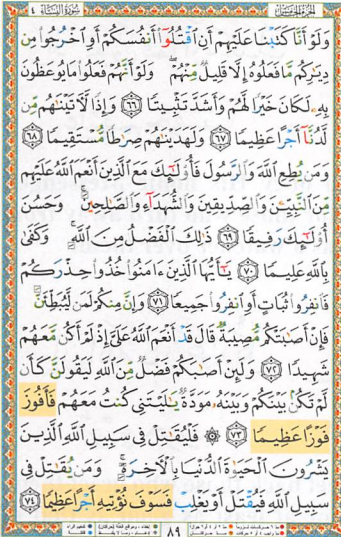 الجزء الخامس سورة النساء ٤
وَلَوْ أَنَّا كَتَبْنَا عَلَيْهِمْ أَنِ ٱقْتُلُوٓا۟ أَنفُسَكُمْ أَوِ ٱخْرُجُوا۟ مِن
دِيَٰرِكُم مَّا فَعَلُوهُ إِلَّا قَلِيلٌ مِّنْهُمْ ۖ وَلَوْ أَنَّهُمْ فَعَلُوا۟ مَا يُوعَظُونَ
بِهِۦ لَكَانَ خَيْرًا لَّهُمْ وَأَشَدَّ تَثْبِيتًا ٦٦ وَإِذًا لَّءَاتَيْنَٰهُم مِّن
لَّدُنَّآ أَجْرًا عَظِيمًا ٦٧ وَلَهَدَيْنَٰهُمْ صِرَٰطًا مُّسْتَقِيمًا ٦٨
وَمَن يُطِعِ ٱللَّهَ وَٱلرَّسُولَ فَأُو۟لَٰٓئِكَ مَعَ ٱلَّذِينَ أَنْعَمَ ٱللَّهُ عَلَيْهِم
مِّنَ ٱلنَّبِيِّـۧنَ وَٱلصِّدِّيقِينَ وَٱلشُّهَدَآءِ وَٱلصَّٰلِحِينَ ۚ وَحَسُنَ
أُو۟لَٰٓئِكَ رَفِيقًا ٦٩ ذَٰلِكَ ٱلْفَضْلُ مِنَ ٱللَّهِ ۚ وَكَفَىٰ
بِٱللَّهِ عَلِيمًا ٧٠ يَٰٓأَيُّهَا ٱلَّذِينَ ءَامَنُوا۟ خُذُوا۟ حِذْرَكُمْ
فَٱنفِرُوا۟ ثُبَاتٍ أَوِ ٱنفِرُوا۟ جَمِيعًا ٧١ وَإِنَّ مِنكُمْ لَمَن لَّيُبَطِّئَنَّ
فَإِنْ أَصَٰبَتْكُم مُّصِيبَةٌ قَالَ قَدْ أَنْعَمَ ٱللَّهُ عَلَىَّ إِذْ لَمْ أَكُن مَّعَهُمْ
شَهِيدًا ٧٢ وَلَئِنْ أَصَٰبَكُمْ فَضْلٌ مِّنَ ٱللَّهِ لَيَقُولَنَّ كَأَن
لَّمْ تَكُنۢ بَيْنَكُمْ وَبَيْنَهُۥ مَوَدَّةٌ يَٰلَيْتَنِى كُنتُ مَعَهُمْ فَأَفُوزَ
فَوْزًا عَظِيمًا ٧٣ ۞ فَلْيُقَٰتِلْ فِى سَبِيلِ ٱللَّهِ ٱلَّذِينَ
يَشْرُونَ ٱلْحَيَوٰةَ ٱلدُّنْيَا بِٱلْءَاخِرَةِ ۚ وَمَن يُقَٰتِلْ فِى
سَبِيلِ ٱللَّهِ فَيُقْتَلْ أَوْ يَغْلِبْ فَسَوْفَ نُؤْتِيهِ أَجْرًا عَظِيمًا ٧٤
٨٩